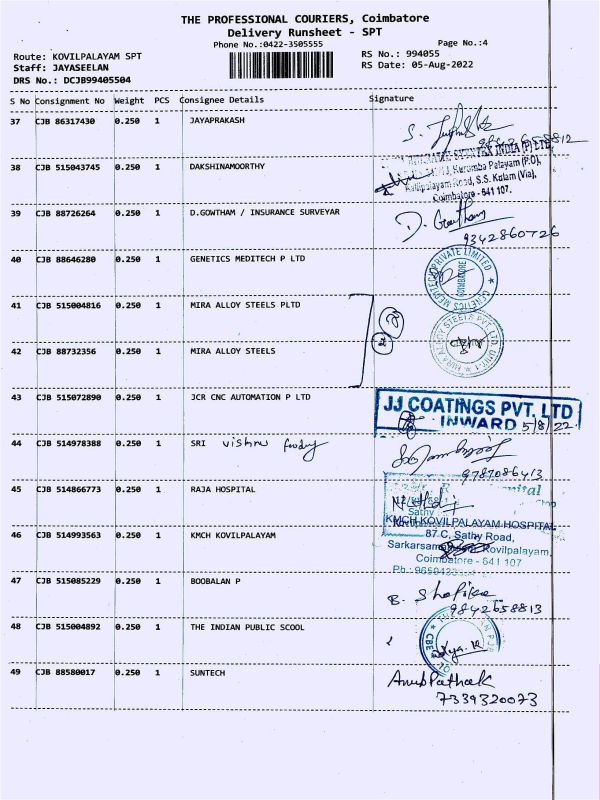 THE PROFESSIONAL COURIERS, Coimbatore
Delivery Runsheet - SPT
Phone No.:0422-3505555
Page No.:4
Route: KOVILPALAYAM SPT
RS No.: 994055
Staff: JAYASEELAN
RS Date: 05-Aug-2022
DRS No.: DCJB99405504
S No Consignment No Weight PCS Consignee Details Signature
37 CJB 86317430 0.250 1 JAYAPRAKASH
38 CJB 515043745 0.250 1 DAKSHINAMOORTHY
INDIA (P) LTD
Kurumba Palayam (P.O),
Kalipalayam Road, S.S. Kulam (Via),
Coimbatore - 641 107.
39 CJB 88726264 0.250 1 D.GOWTHAM / INSURANCE SURVEYAR
D. Gowtham
9342860726
40 CJB 88646280 0.250 1 GENETICS MEDITECH P LTD
GENETICS MEDITECH PRIVATE LIMITED
COIMBATORE
41 CJB 515004816 0.250 1 MIRA ALLOY STEELS PLTD
MIRA ALLOY STEELS PVT. LTD. UNIT-1
42 CJB 88732356 0.250 1 MIRA ALLOY STEELS
43 CJB 515072890 0.250 1 JCR CNC AUTOMATION P LTD
JJ COATINGS PVT. LTD
INWARD 5/8/22
44 CJB 514978388 0.250 1 SRI vishnu foundry
9787086413
45 CJB 514866773 0.250 1 RAJA HOSPITAL
46 CJB 514993563 0.250 1 KMCH KOVILPALAYAM
KMCH KOVILPALAYAM HOSPITAL
87 C, Sathy Road,
Kovilpalayam,
Coimbatore - 641 107
47 CJB 515085229 0.250 1 BOOBALAN P
B. Shopika
9842658813
48 CJB 515004892 0.250 1 THE INDIAN PUBLIC SCOOL
49 CJB 88580017 0.250 1 SUNTECH
Anub Pathak
7339320073